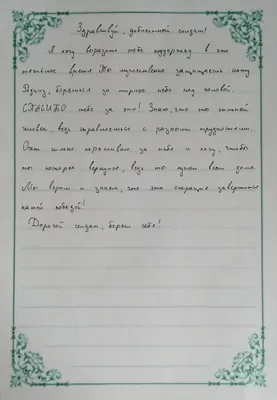 Здравствуй, доблестный солдат!
Я хочу выразить тебе поддержку в это
тяжёлое время. Ты мужественно защищаешь нашу
Родину, борешься за мирное небо над головой.
СПАСИБО тебе за это! Знаю, что ты сильный
человек, ведь справляешься с разными трудностями.
Очень сильно переживаю за тебя и хочу, чтобы
ты поскорее вернулся, ведь ты нужен всем дома.
Мы верим и знаем, что эта операция завершится
нашей победой!
Дорогой солдат, береги себя!